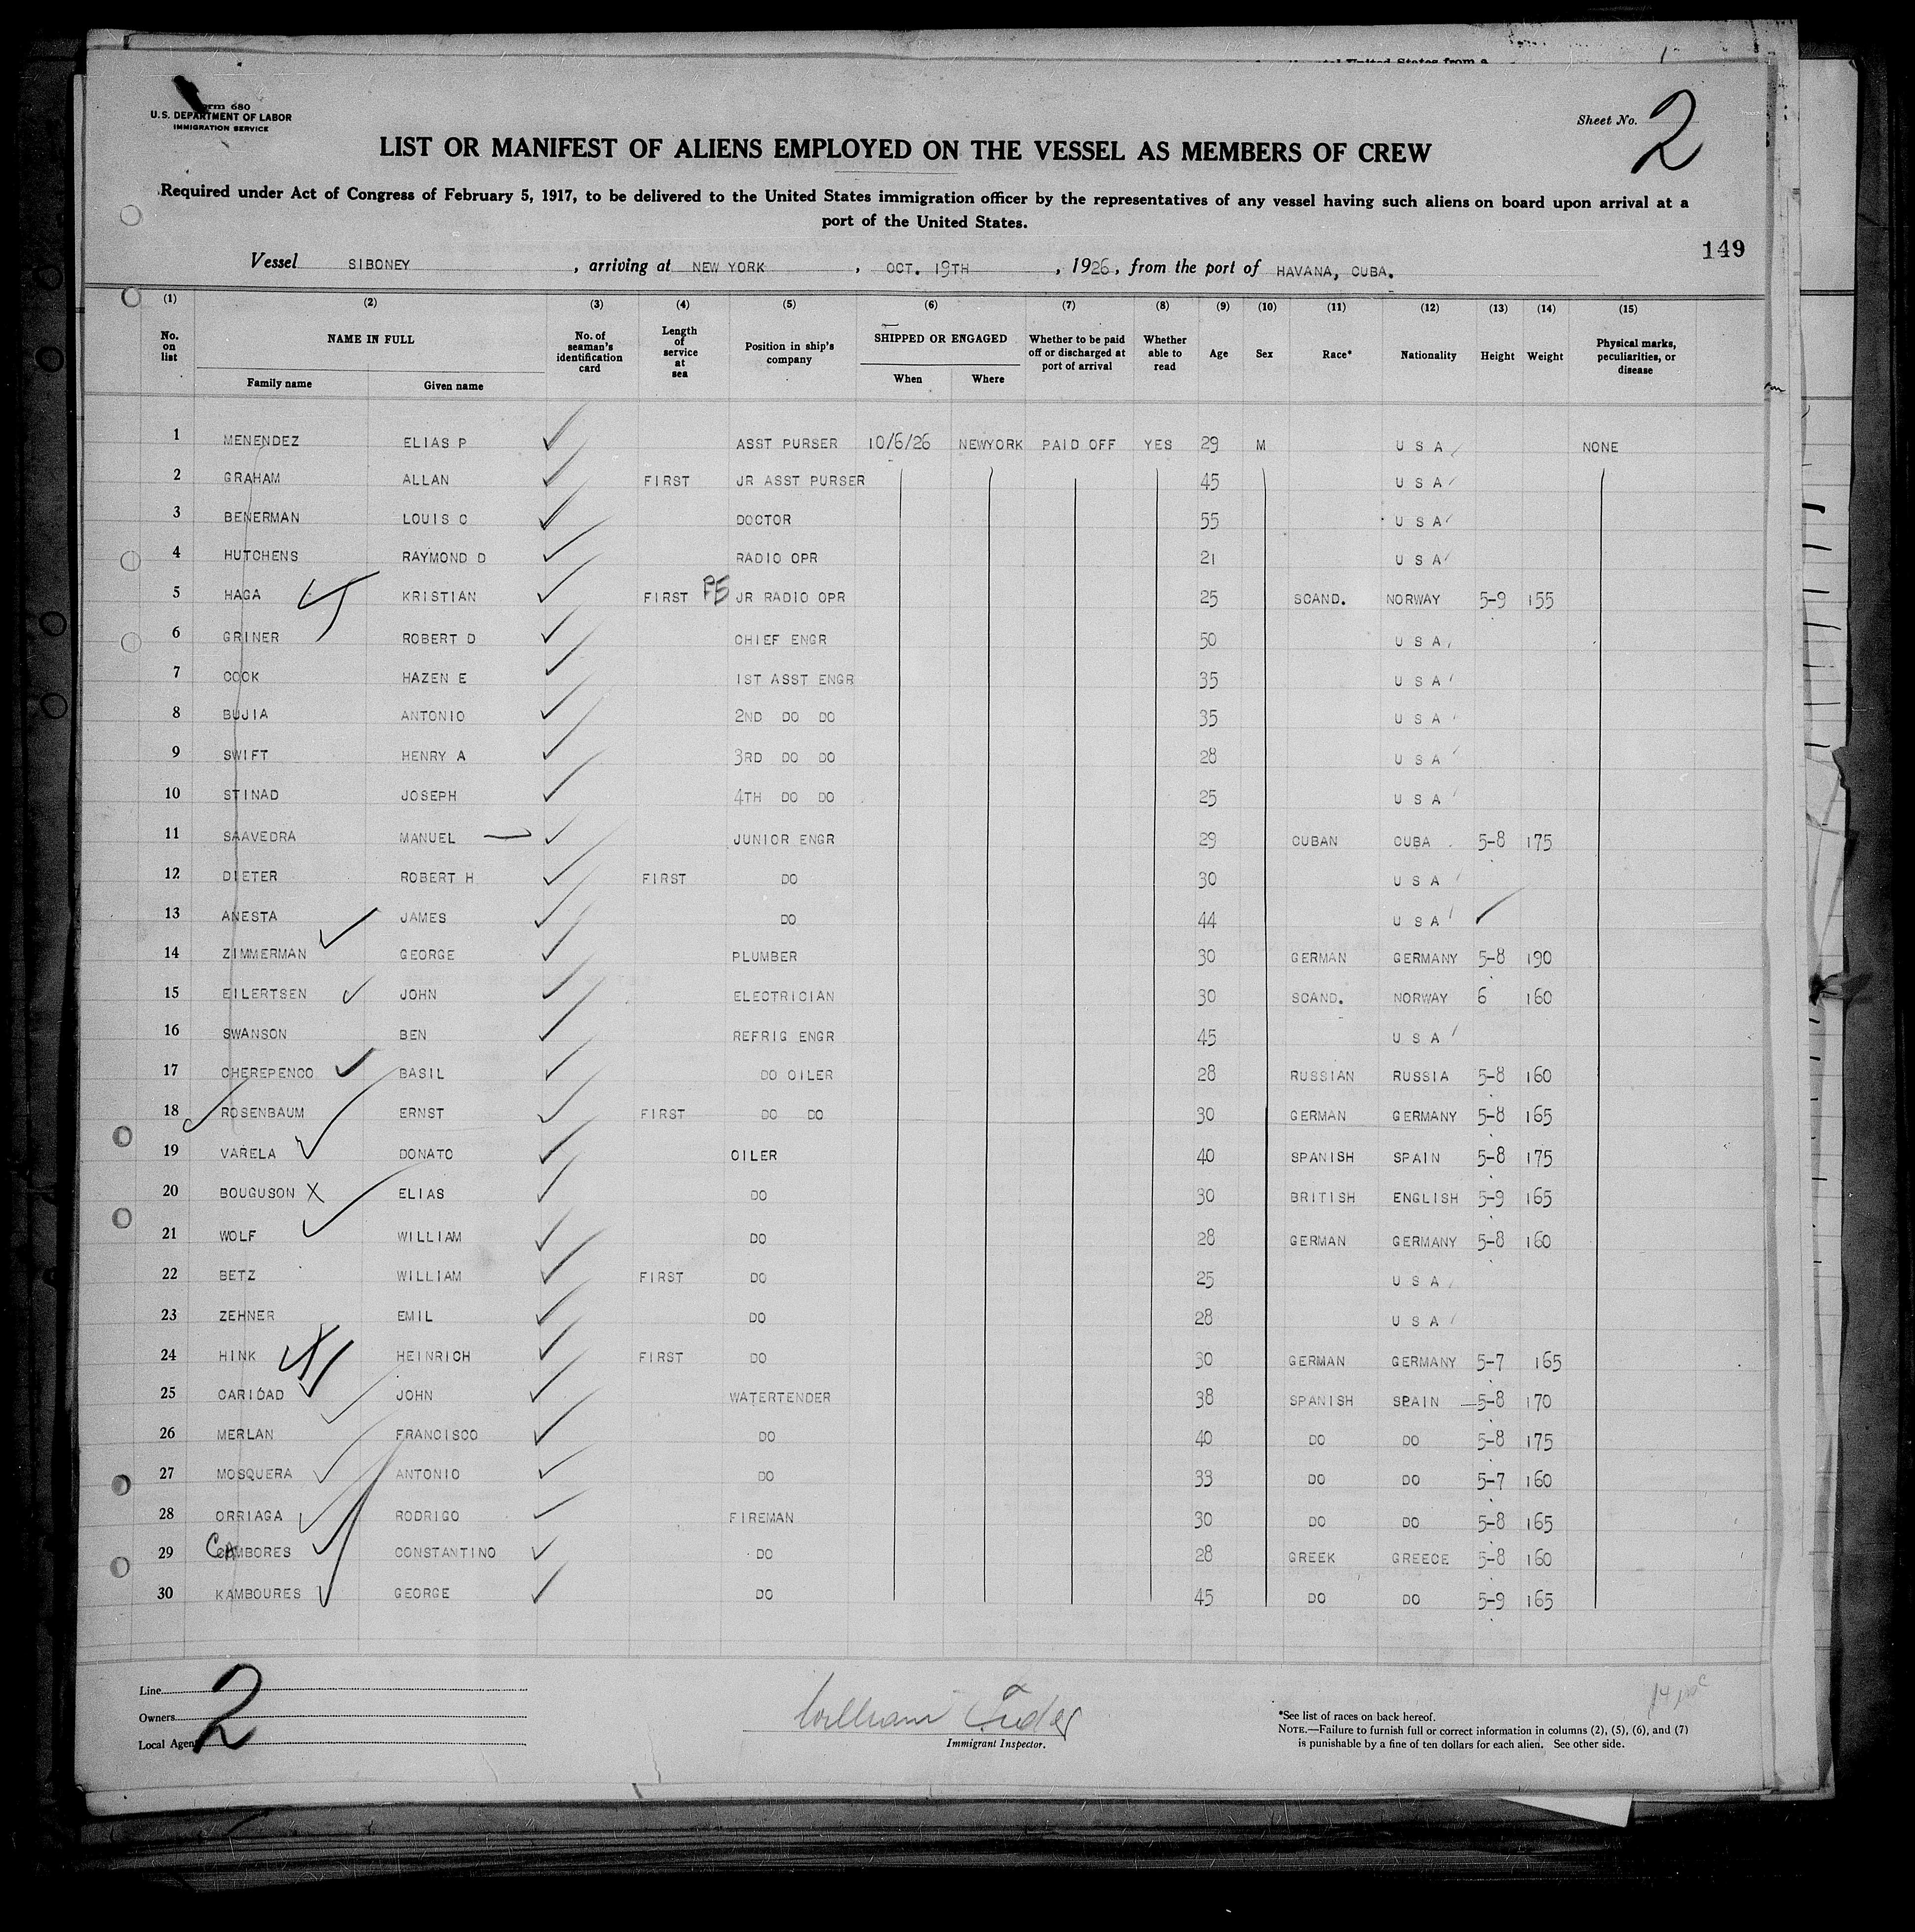 Form 680
U.S. DEPARTMENT OF LABOR
IMMIGRATION SERVICE
Sheet No. 2
LIST OR MANIFEST OF ALIENS EMPLOYED ON THE VESSEL AS MEMBERS OF CREW
Required under Act of Congress of February 5, 1917, to be delivered to the United States immigration officer by the representatives of any vessel having such aliens on board upon arrival at a
port of the United States.
149
Vessel SIBONEY, arriving at NEW YORK, OCT. 19TH, 1926, from the port of HAVANA, CUBA.
(1) (2) (3) (4) (5) (6) (7) (8) (9) (10) (11) (12) (13) (14) (15)
No. on list NAME IN FULL Family name Given name No. of seaman's identification card Length of service at sea Position in ship's company SHIPPED OR ENGAGED When Where Whether to be paid off or discharged at port of arrival Whether able to read Age Sex Race* Nationality Height Weight Physical marks, peculiarities, or disease
1 MENENDEZ ELIAS P ASST PURSER 10/6/26 NEWYORK PAID OFF YES 29 M U S A NONE
2 GRAHAM ALLAN FIRST JR ASST PURSER 45 U S A
3 BENERMAN LOUIS C DOCTOR 55 U S A
4 HUTCHENS RAYMOND D RADIO OPR 21 U S A
5 HAGA KRISTIAN FIRST JR RADIO OPR 25 SCAND. NORWAY 5-9 155
6 GRINER ROBERT D CHIEF ENGR 50 U S A
7 COOK HAZEN E 1ST ASST ENGR 35 U S A
8 BUJIA ANTONIO 2ND DO DO 35 U S A
9 SWIFT HENRY A 3RD DO DO 28 U S A
10 STINAD JOSEPH 4TH DO DO 25 U S A
11 SAAVEDRA MANUEL JUNIOR ENGR 29 CUBAN CUBA 5-8 175
12 DIETER ROBERT H FIRST DO 30 U S A
13 ANESTA JAMES DO 44 U S A
14 ZIMMERMAN GEORGE PLUMBER 30 GERMAN GERMANY 5-8 190
15 EILERTSEN JOHN ELECTRICIAN 30 SCAND. NORWAY 6 160
16 SWANSON BEN REFRIG ENGR 45 U S A
17 CHEREPENCO BASIL DO OILER 28 RUSSIAN RUSSIA 5-8 160
18 ROSENBAUM ERNST FIRST DO DO 30 GERMAN GERMANY 5-8 165
19 VARELA DONATO OILER 40 SPANISH SPAIN 5-8 175
20 BOUGUSON X ELIAS DO 30 BRITISH ENGLISH 5-9 165
21 WOLF WILLIAM DO 28 GERMAN GERMANY 5-8 160
22 BETZ WILLIAM FIRST DO 25 U S A
23 ZEHNER EMIL DO 28 U S A
24 HINK HEINRICH FIRST DO 30 GERMAN GERMANY 5-7 165
25 CARIDAD JOHN WATERTENDER 38 SPANISH SPAIN 5-8 170
26 MERLAN FRANCISCO DO 40 DO DO 5-8 175
27 MOSQUERA ANTONIO DO 33 DO DO 5-7 160
28 ORRIAGA RODRIGO FIREMAN 30 DO DO 5-8 165
29 CAMBORES CONSTANTINO DO 28 GREEK GREECE 5-8 160
30 KAMBOURES GEORGE DO 45 DO DO 5-9 165
Line
Owners
Local Agent
2
William
Immigrant Inspector.
*See list of races on back hereof.
NOTE.—Failure to furnish full or correct information in columns (2), (5), (6), and (7)
is punishable by a fine of ten dollars for each alien. See other side.